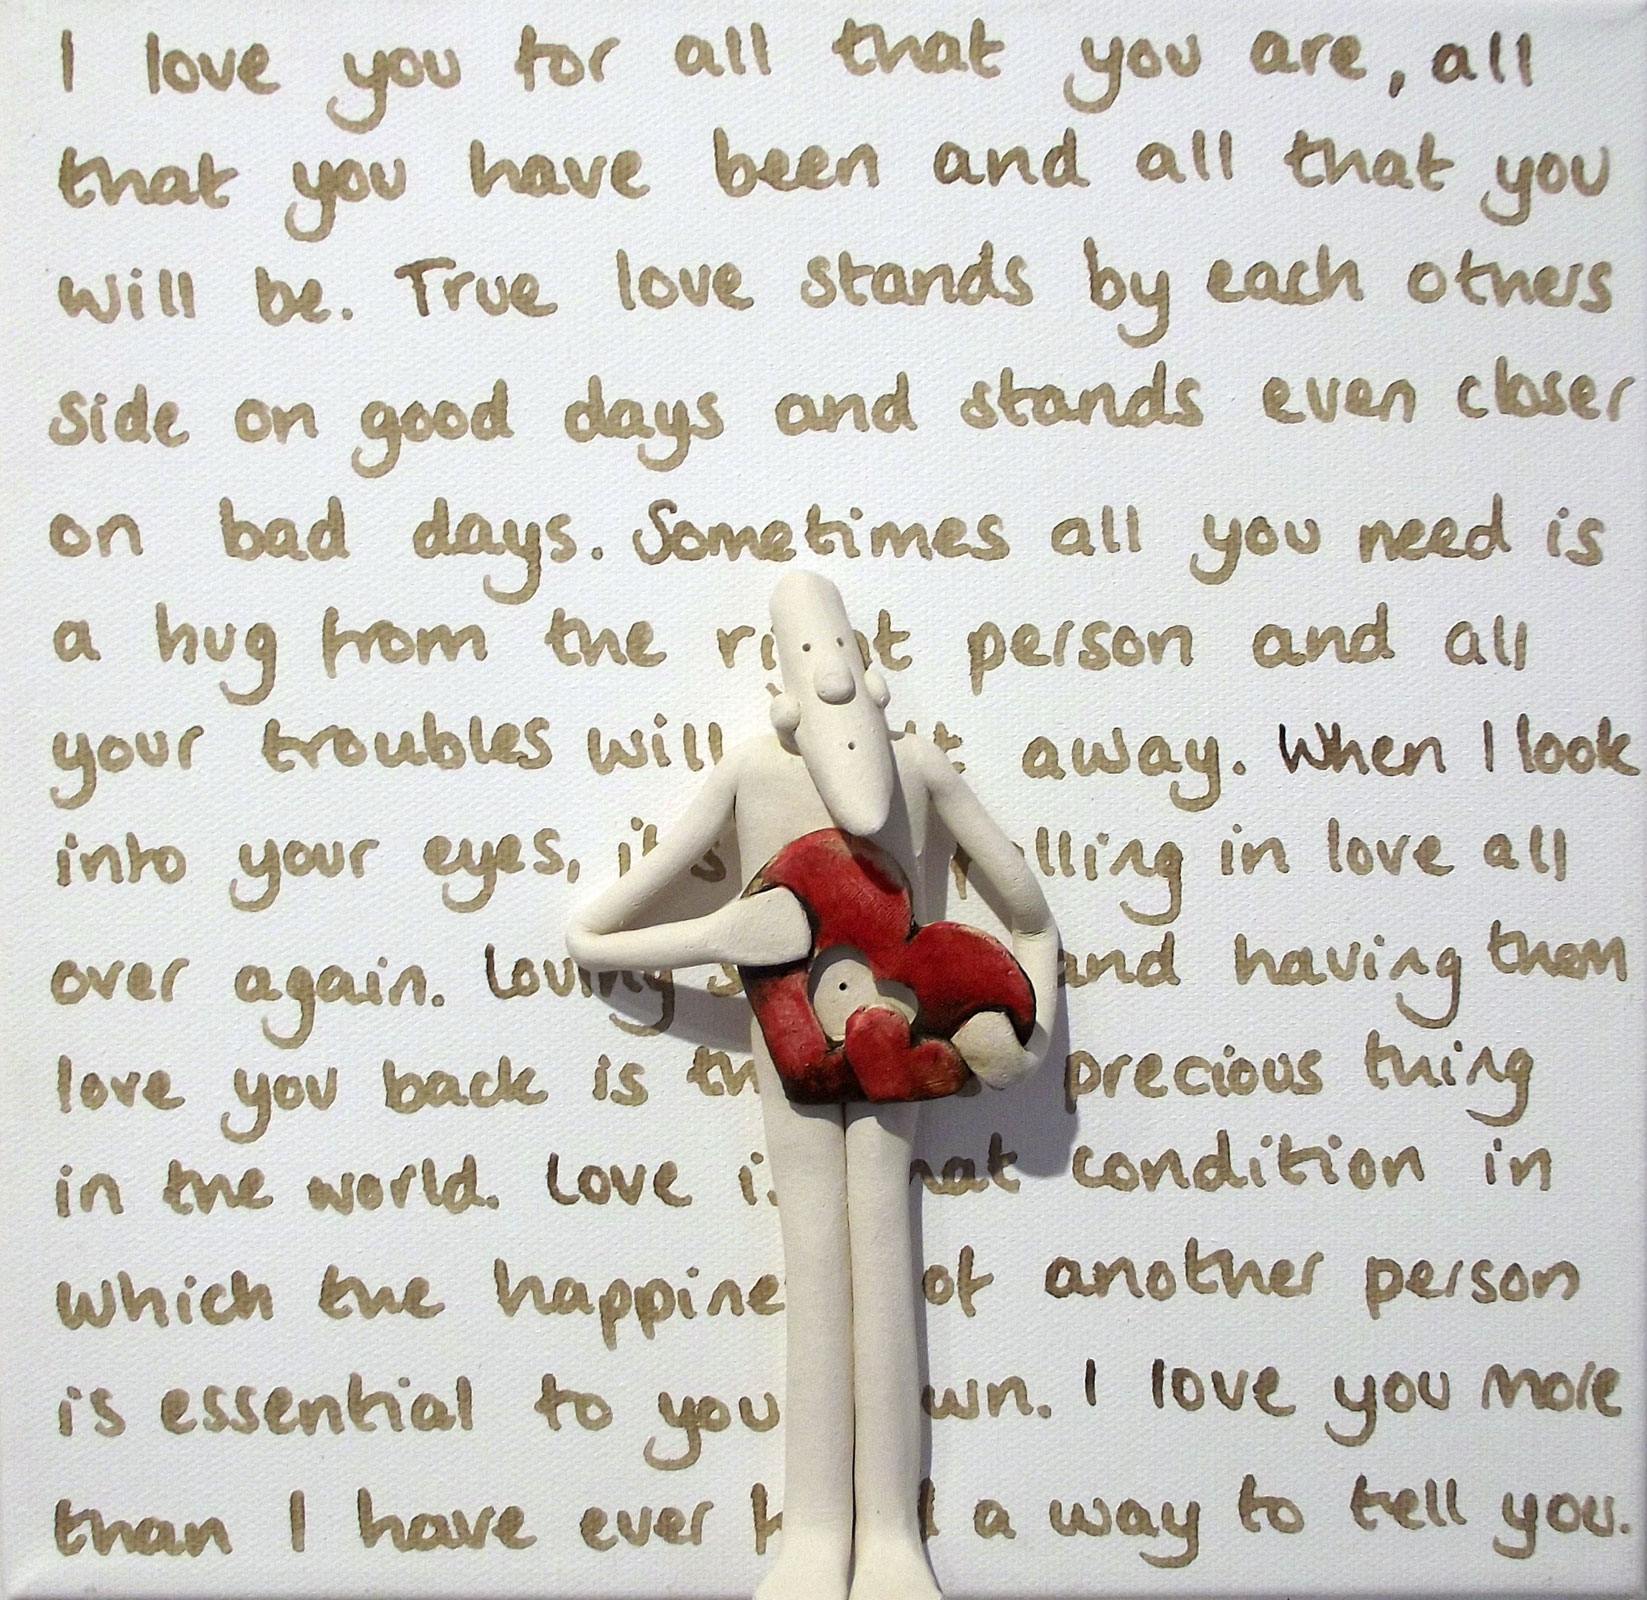 I love you for all that you are, all
that you have been and all that you
will be. True love stands by each others
side on good days and stands even closer
on bad days. Sometimes all you need is
a hug from the right person and all
your troubles will away. When I look
into your eyes, it's falling in love all
over again. Loving and having them
love you back is the precious thing
in the world. Love is that condition in
which the happiness of another person
is essential to your own. I love you more
than I have ever a way to tell you.